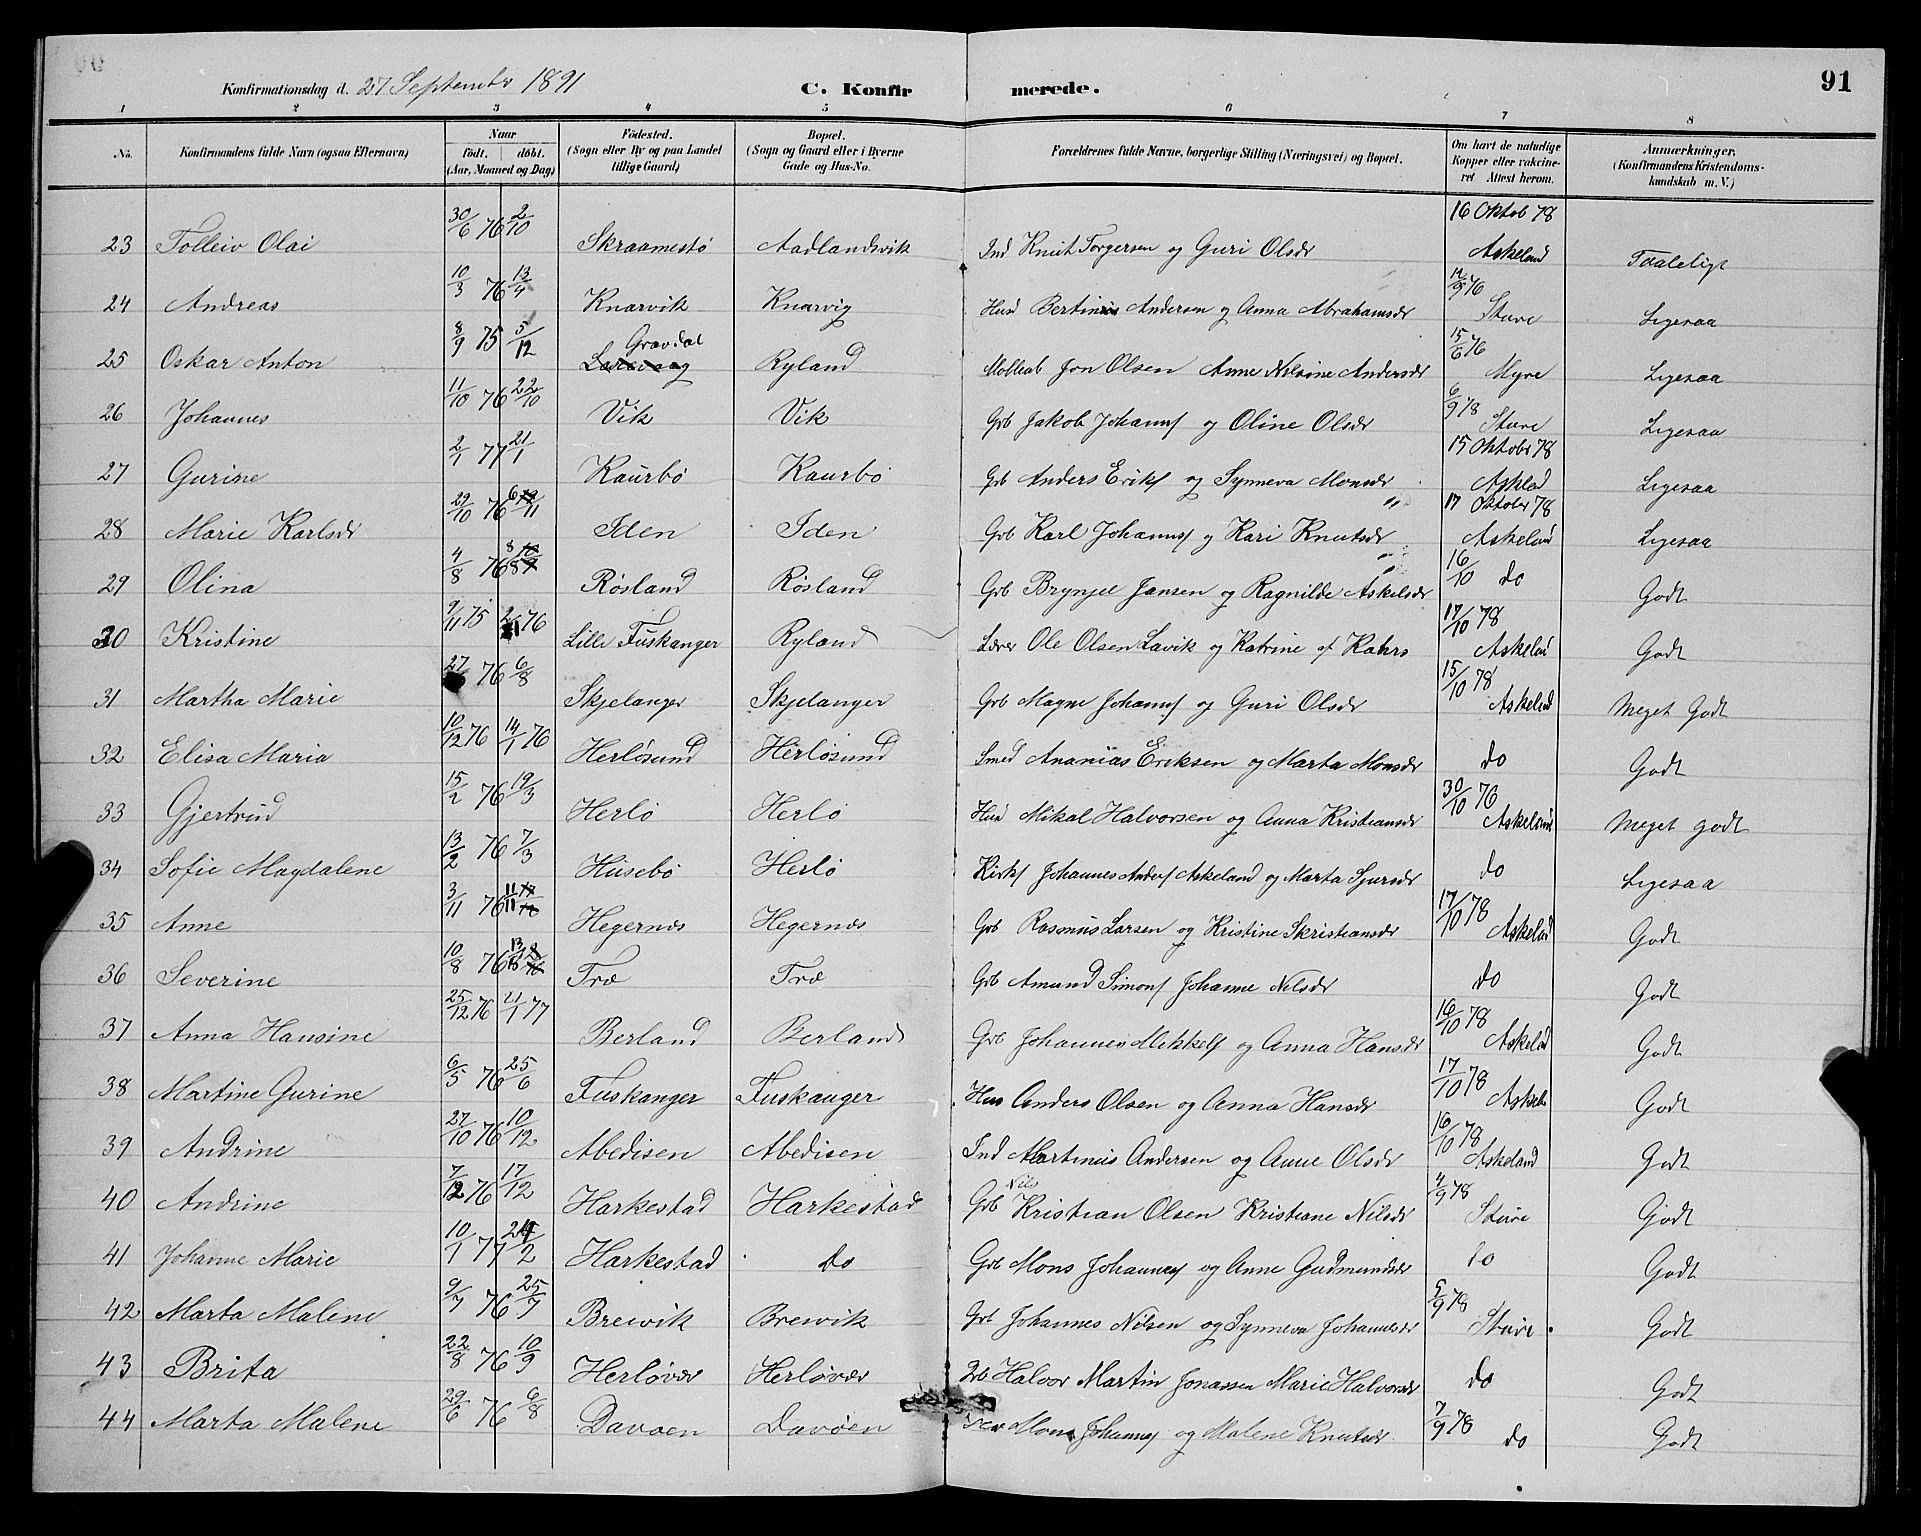 Konfirmationsdag d. 27 September 1891 C. Konfirmerede. 91
1 2 3 4 5 6 7 8
No. Konfirmandens fulde Navn (ogsaa Efternavn) Naar født. døbt. (Aar, Maaned og Dag) Fødested. (Sogn eller By og paa Landet tillige Gaard) Bopæl. (Sogn og Gaard eller i Byerne Gade og Hus-No. Forældrenes fulde Navne, borgerlige Stilling (Næringsvei) og Bopæl. Om havt de naturlige Kopper eller vakcineret Attest herom. Anmærkninger. (Konfirmandens Kristendomskundskab m. V.)
23 Tolleiv Olai 30/6 76 2/10 Skraamestø Aadlandsvik Ind Knut Torgersen og Guri Olsdr 16 Oktob 78 Askeland Taaleligt
24 Andreas 10/3 76 13/4 Knarvik Knarvig Hus Bertinius Andersen og Anna Abrahamsdr 12/9 76 Sture Ligesaa
25 Oskar Anton 8/9 75 5/12 Gravdal Ryland Jon Olsen Anne Nilsine Andersdr 15/6 76 Myre Ligesaa
26 Johannes 11/10 76 22/10 Vik Vik Grb Jakob Johanns og Oline Olsdr 6/9 78 Sture Ligesaa
27 Gurine 2/1 77 21/1 Kaurbø Kaurbø Grb Anders Eriks og Synneva Monsdr 15 Oktober 78 Askelad Ligesaa
28 Marie Karlsdr 29/10 76 Iden Iden Grb Karl Johanns og Kari Knutsdr 17 Oktober 78 Askeland Ligesaa
29 Olina 4/8 76 Røsland Røsland Grb Brynjel Jansen og Ragnilde Askelsdr 16/10 do Godt
30 Kristine 9/11 75 2/1 76 Lille Fuskanger Ryland Lærer Ole Olsen Lavik og Katrine f Kahrs 17/10 78 Askelad Godt
31 Martha Marie 27/ 76 6/8 Skjelanger Skjelanger Grb Magne Johanns og Guri Olsdr 15/10 78 Askelad Meget Godt
32 Elisa Maria 10/12 76 14/1 76 Herløsund Herløsund Smed Ananias Eriksen og Marta Monsdr do Godt
33 Gjertrud 15/2 76 19/3 Herlø Herlø Hus Mikal Halvorsen og Anna Kristiansdr 30/10 76 Askeland Meget godt
34 Sofie Magdalene 13/2 76 7/3 Husebø Herlø Kirks Johannes Anders Askeland og Marta Sjursdr do Ligesaa
35 Anne 3/11 76 Hegernes Hegernes Grb Rasmus Larsen og Kristine Skristiansdr 17/10 78 Askelad Godt
36 Severine 10/8 76 Træ Træ Grb Amund Simons Johanne Nilsdr do Godt
37 Anna Hansine 25/12 76 21/1 77 Berland Berland Grb Johannes Mikkels og Anna Hansdr 16/10 78 Askelad Godt
38 Martine Gurine 6/5 76 25/6 Fuskanger Fuskanger Hus Anders Olsen og Anna Hansdr 17/10 78 Askel Godt
39 Andrine 27/10 76 10/12 Abedisen Abedisen Ind Martinus Andersen og Anne Olsdr 16/10 78 Askeland Godt
40 Andrine 7/12 76 17/12 Harkestad Harkestad Grb Nils Kristian Olsen Kristiane Nilsdr 4/9 78 Sture Godt
41 Johanne Marie 10/1 77 24/2 Harkestad do Grb Mons Johannes og Anne Gudmundsdr do Godt
42 Marta Malene 9/7 76 25/7 Breivik Breivik Grb Johannes Nilsen og Synneva Johannesdr 5/9 78 Sture Godt
43 Brita 22/8 76 10/9 Herløvær Herløvær Grb Halvor Martin Jonassen Marie Halvorsdr do Godt
44 Marta Malene 29/6 76 6/8 Davøen Davøen Mons Johannes og Malene Knutsdr 7/9 78 do Godt